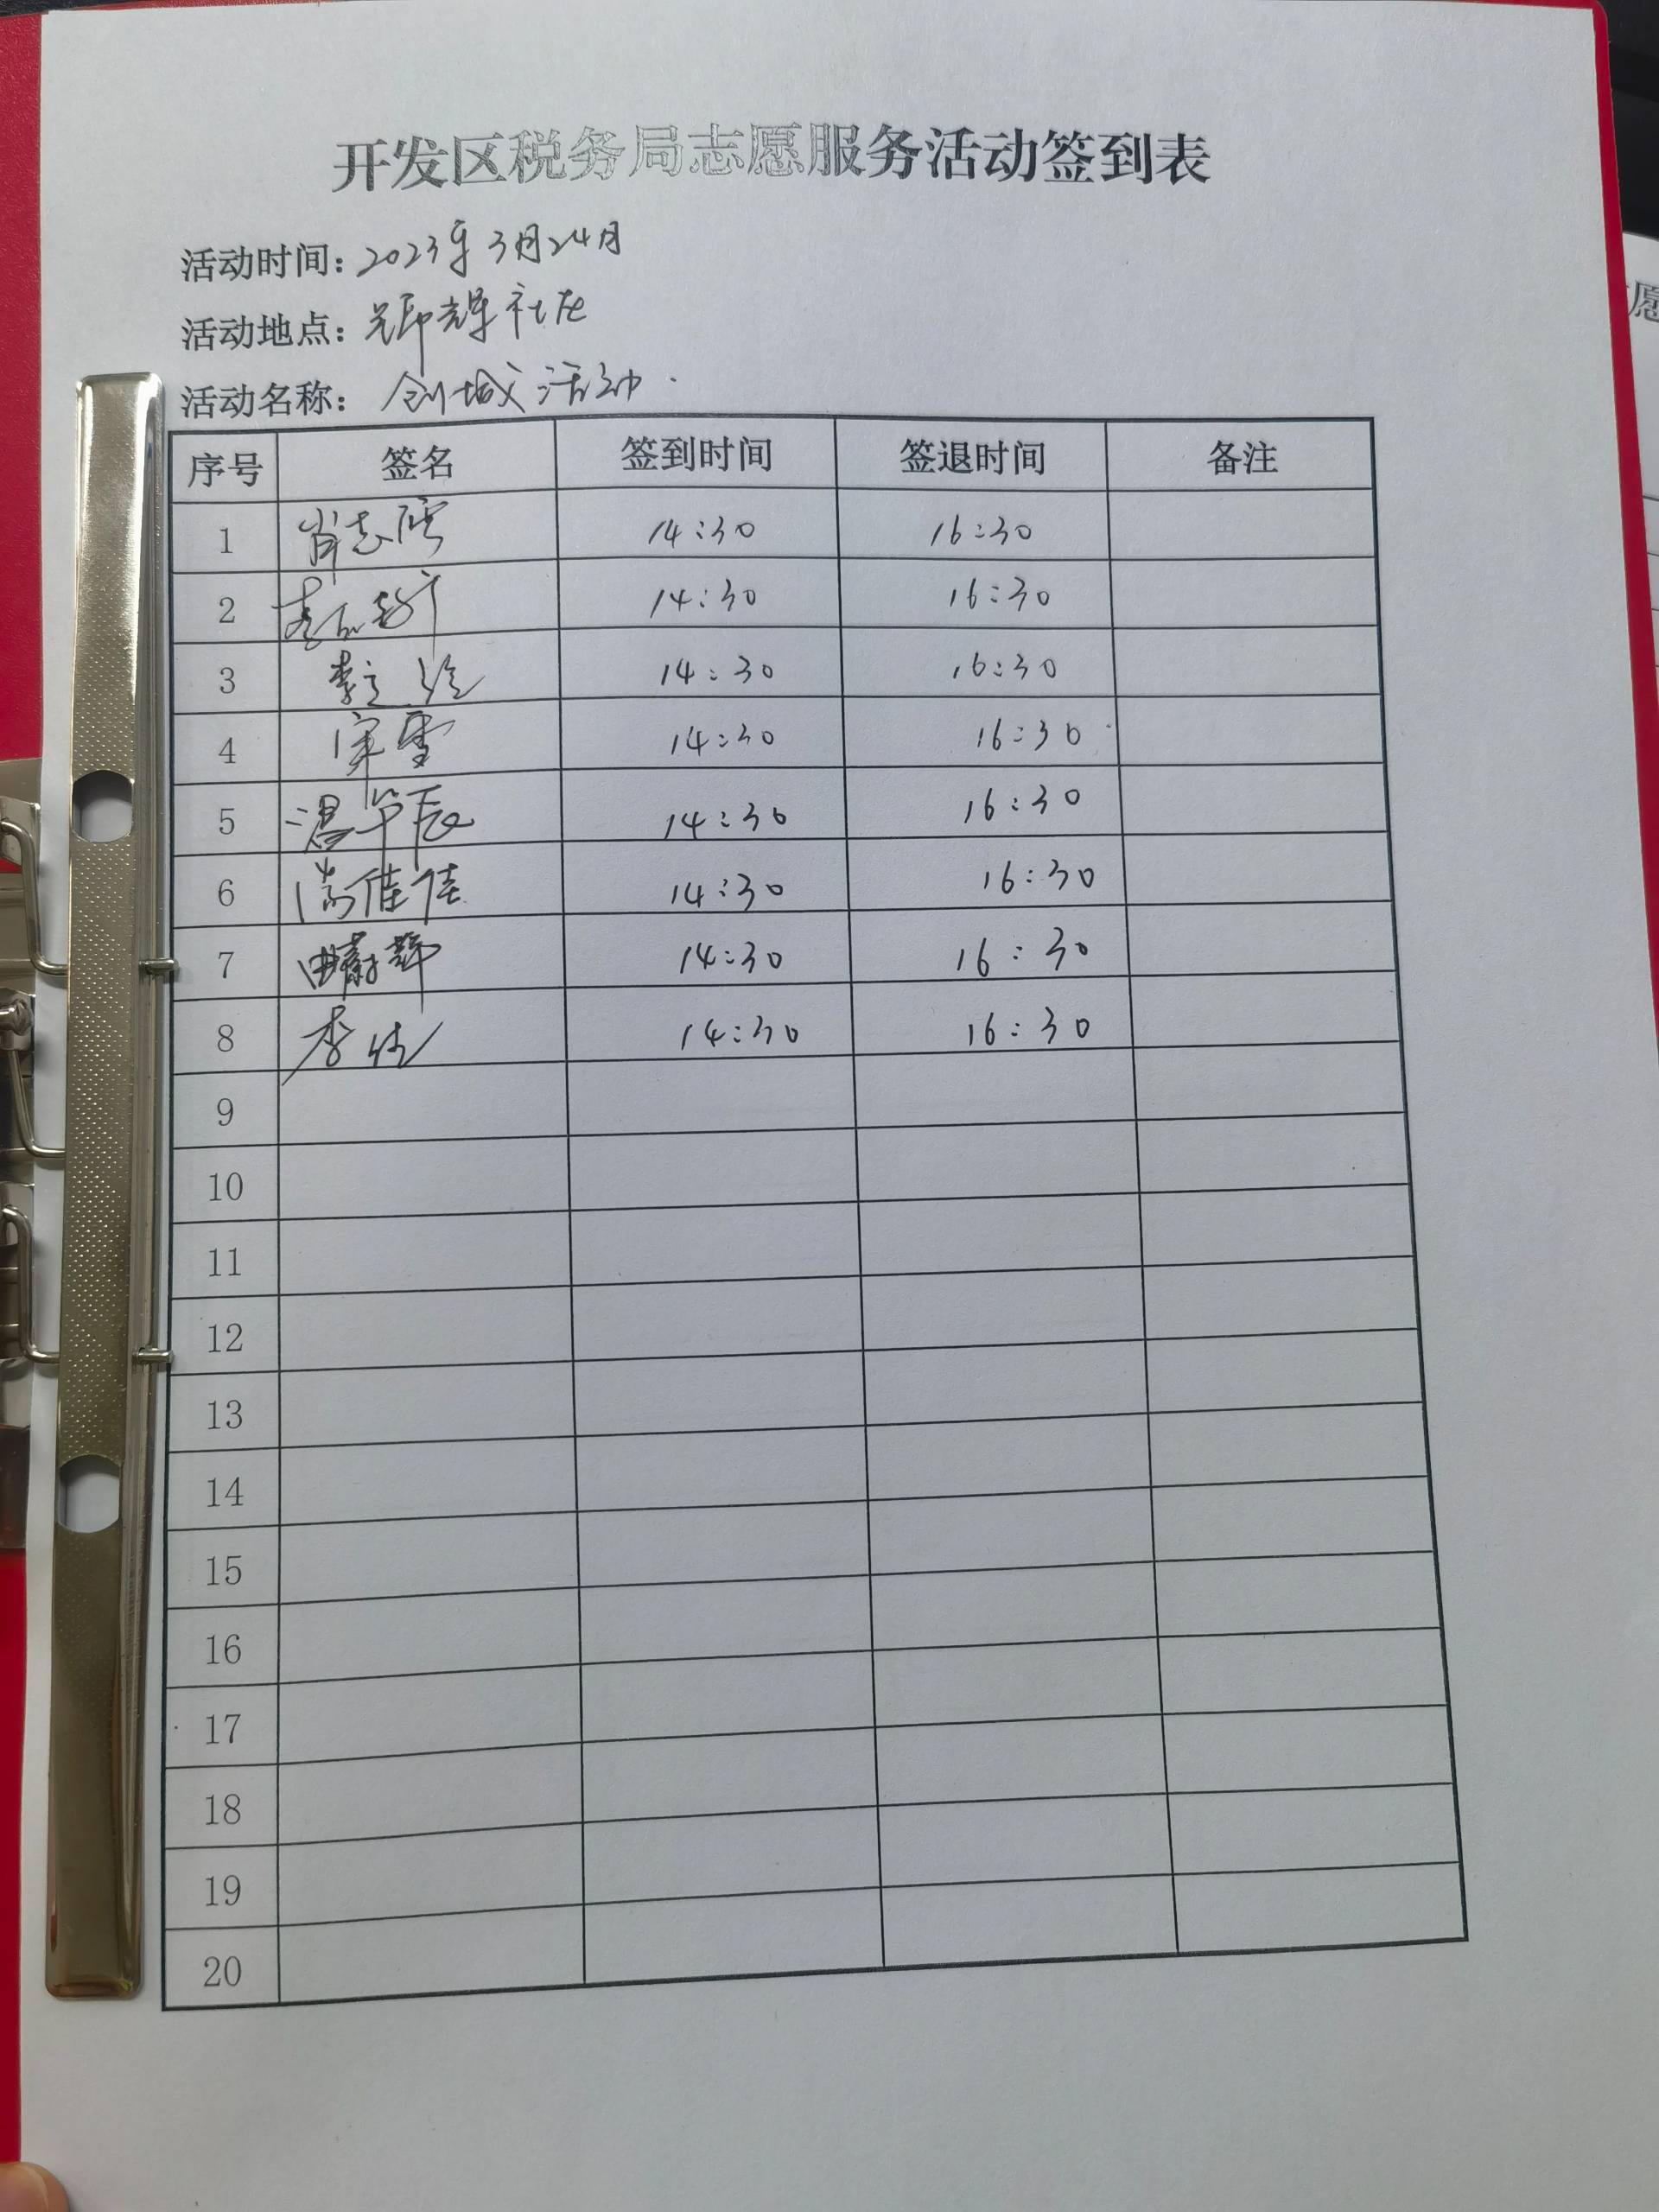 开发区税务局志愿服务活动签到表
活动时间：2023年3月24日
活动地点：辉社区
活动名称：创城活动
序号 签名 签到时间 签退时间 备注
1 肖志 14:30 16:30
2 14:30 16:30
3 14:30 16:30
4 宋雪 14:30 16:30
5 温华辰 14:30 16:30
6 佳佳 14:30 16:30
7 曲蔚 14:30 16:30
8 李倩 14:30 16:30
9
10
11
12
13
14
15
16
17
18
19
20
愿